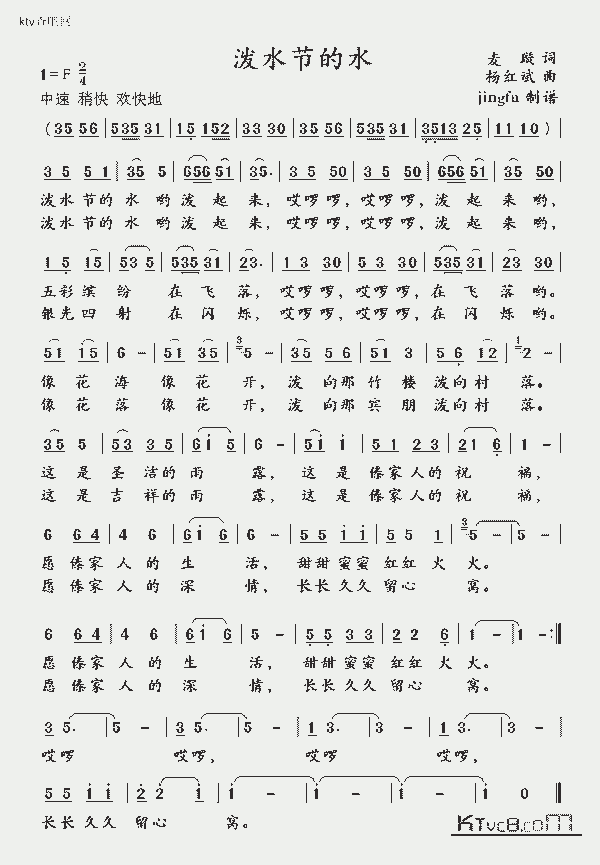 泼水节的水
1=F 2/4
麦 词
杨红斌 曲
中速 稍快 欢快地
jingfu 制谱
( 35 56 | 535 31 | 15 152 | 33 30 | 35 56 | 535 31 | 3513 25 | 11 10 )
3 5 5 1 | 35 5 | 656 51 | 35. | 3 5 50 | 3 5 50 | 656 51 | 35 50
泼水节的水 哟泼 起 来，哎啰啰，哎啰啰，泼 起来哟，
泼水节的水 哟泼 起 来，哎啰啰，哎啰啰，泼 起来哟，
1 5 15 | 53 5 | 535 31 | 23. | 1 3 30 | 5 3 30 | 535 31 | 23 30
五彩缤 纷 在 飞 落，哎啰啰，哎啰啰，在 飞 落哟。
银光四 射 在 闪 烁，哎啰啰，哎啰啰，在 闪 烁哟。
51 15 | 6 - | 51 35 | 3 5 - | 35 5 6 | 51 3 | 5 6 12 | 1 2 -
像 花 海 像 花 开，泼 向那 竹 楼 泼向村 落。
像 花 落 像 花 开，泼 向那 宾 朋 泼向村 落。
35 5 | 53 3 5 | 6 1 5 | 6 - | 5 1 1 | 5 1 2 3 | 21 6 | 1 -
这 是 圣 洁的 雨 露，这 是 傣家人的 祝 福，
这 是 吉 祥的 雨 露，这 是 傣家人的 祝 福，
6 6 4 | 4 6 | 6 1 6 | 6 - | 5 5 1 1 | 5 5 1 | 3 5 - | 5 -
愿 傣家 人 的 生 活，甜甜 蜜蜜 红红 火 火。
愿 傣家 人 的 深 情，长长 久久 留心 窝。
6 6 4 | 4 6 | 6 1 6 | 5 - | 5 5 3 3 | 2 2 6 | 1 - | 1 - :‖
愿 傣家 人 的 生 活，甜甜 蜜蜜 红红 火 火。
愿 傣家 人 的 深 情，长长 久久 留心 窝。
3 5. | 5 - | 3 5. | 5 - | 1 3. | 3 - | 1 3. | 3 -
哎啰 哎啰， 哎啰 哎啰，
5 5 1 1 | 2 2 1 | 1 - | 1 - | 1 - | 1 0 ‖
长长 久久 留心 窝。
KTvc8.com